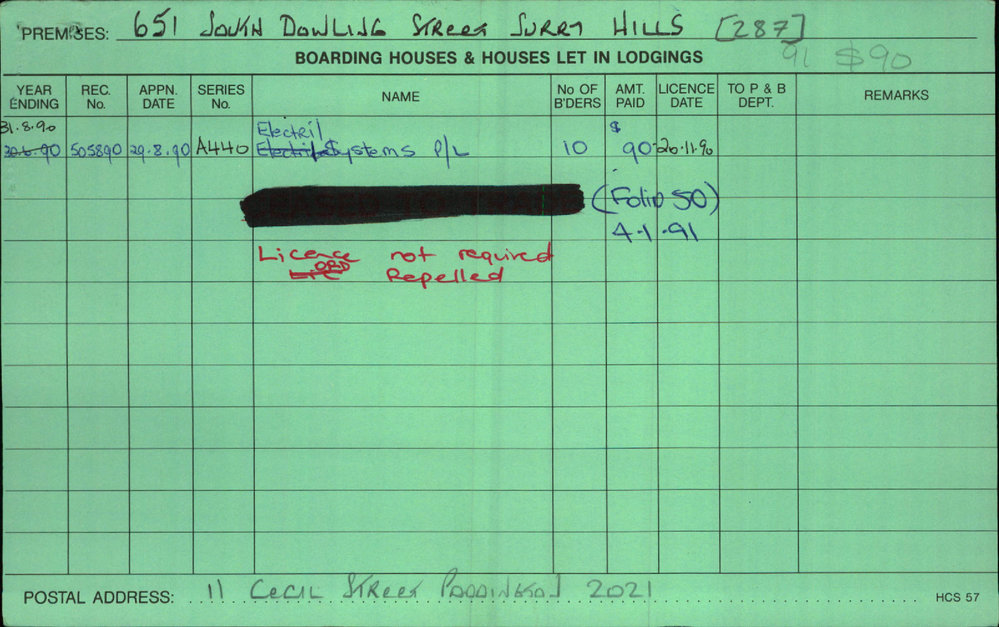 PREMISES: 651 SOUTH DOWLING STREET SURRY HILLS [287]
BOARDING HOUSES & HOUSES LET IN LODGINGS 91 $90
YEAR ENDING REC. No. APPN. DATE SERIES No. NAME No OF B'DERS AMT. PAID LICENCE DATE TO P & B DEPT. REMARKS
31.8.90 Electril $
30.6.90 505890 29.8.90 A440 Electril Systems P/L 10 90 20.11.90
(Folio 50)
4.1.91
Licence not required
ORD
Lic Repelled
POSTAL ADDRESS: 11 CECIL STREET PADDINGTON 2021 HCS 57